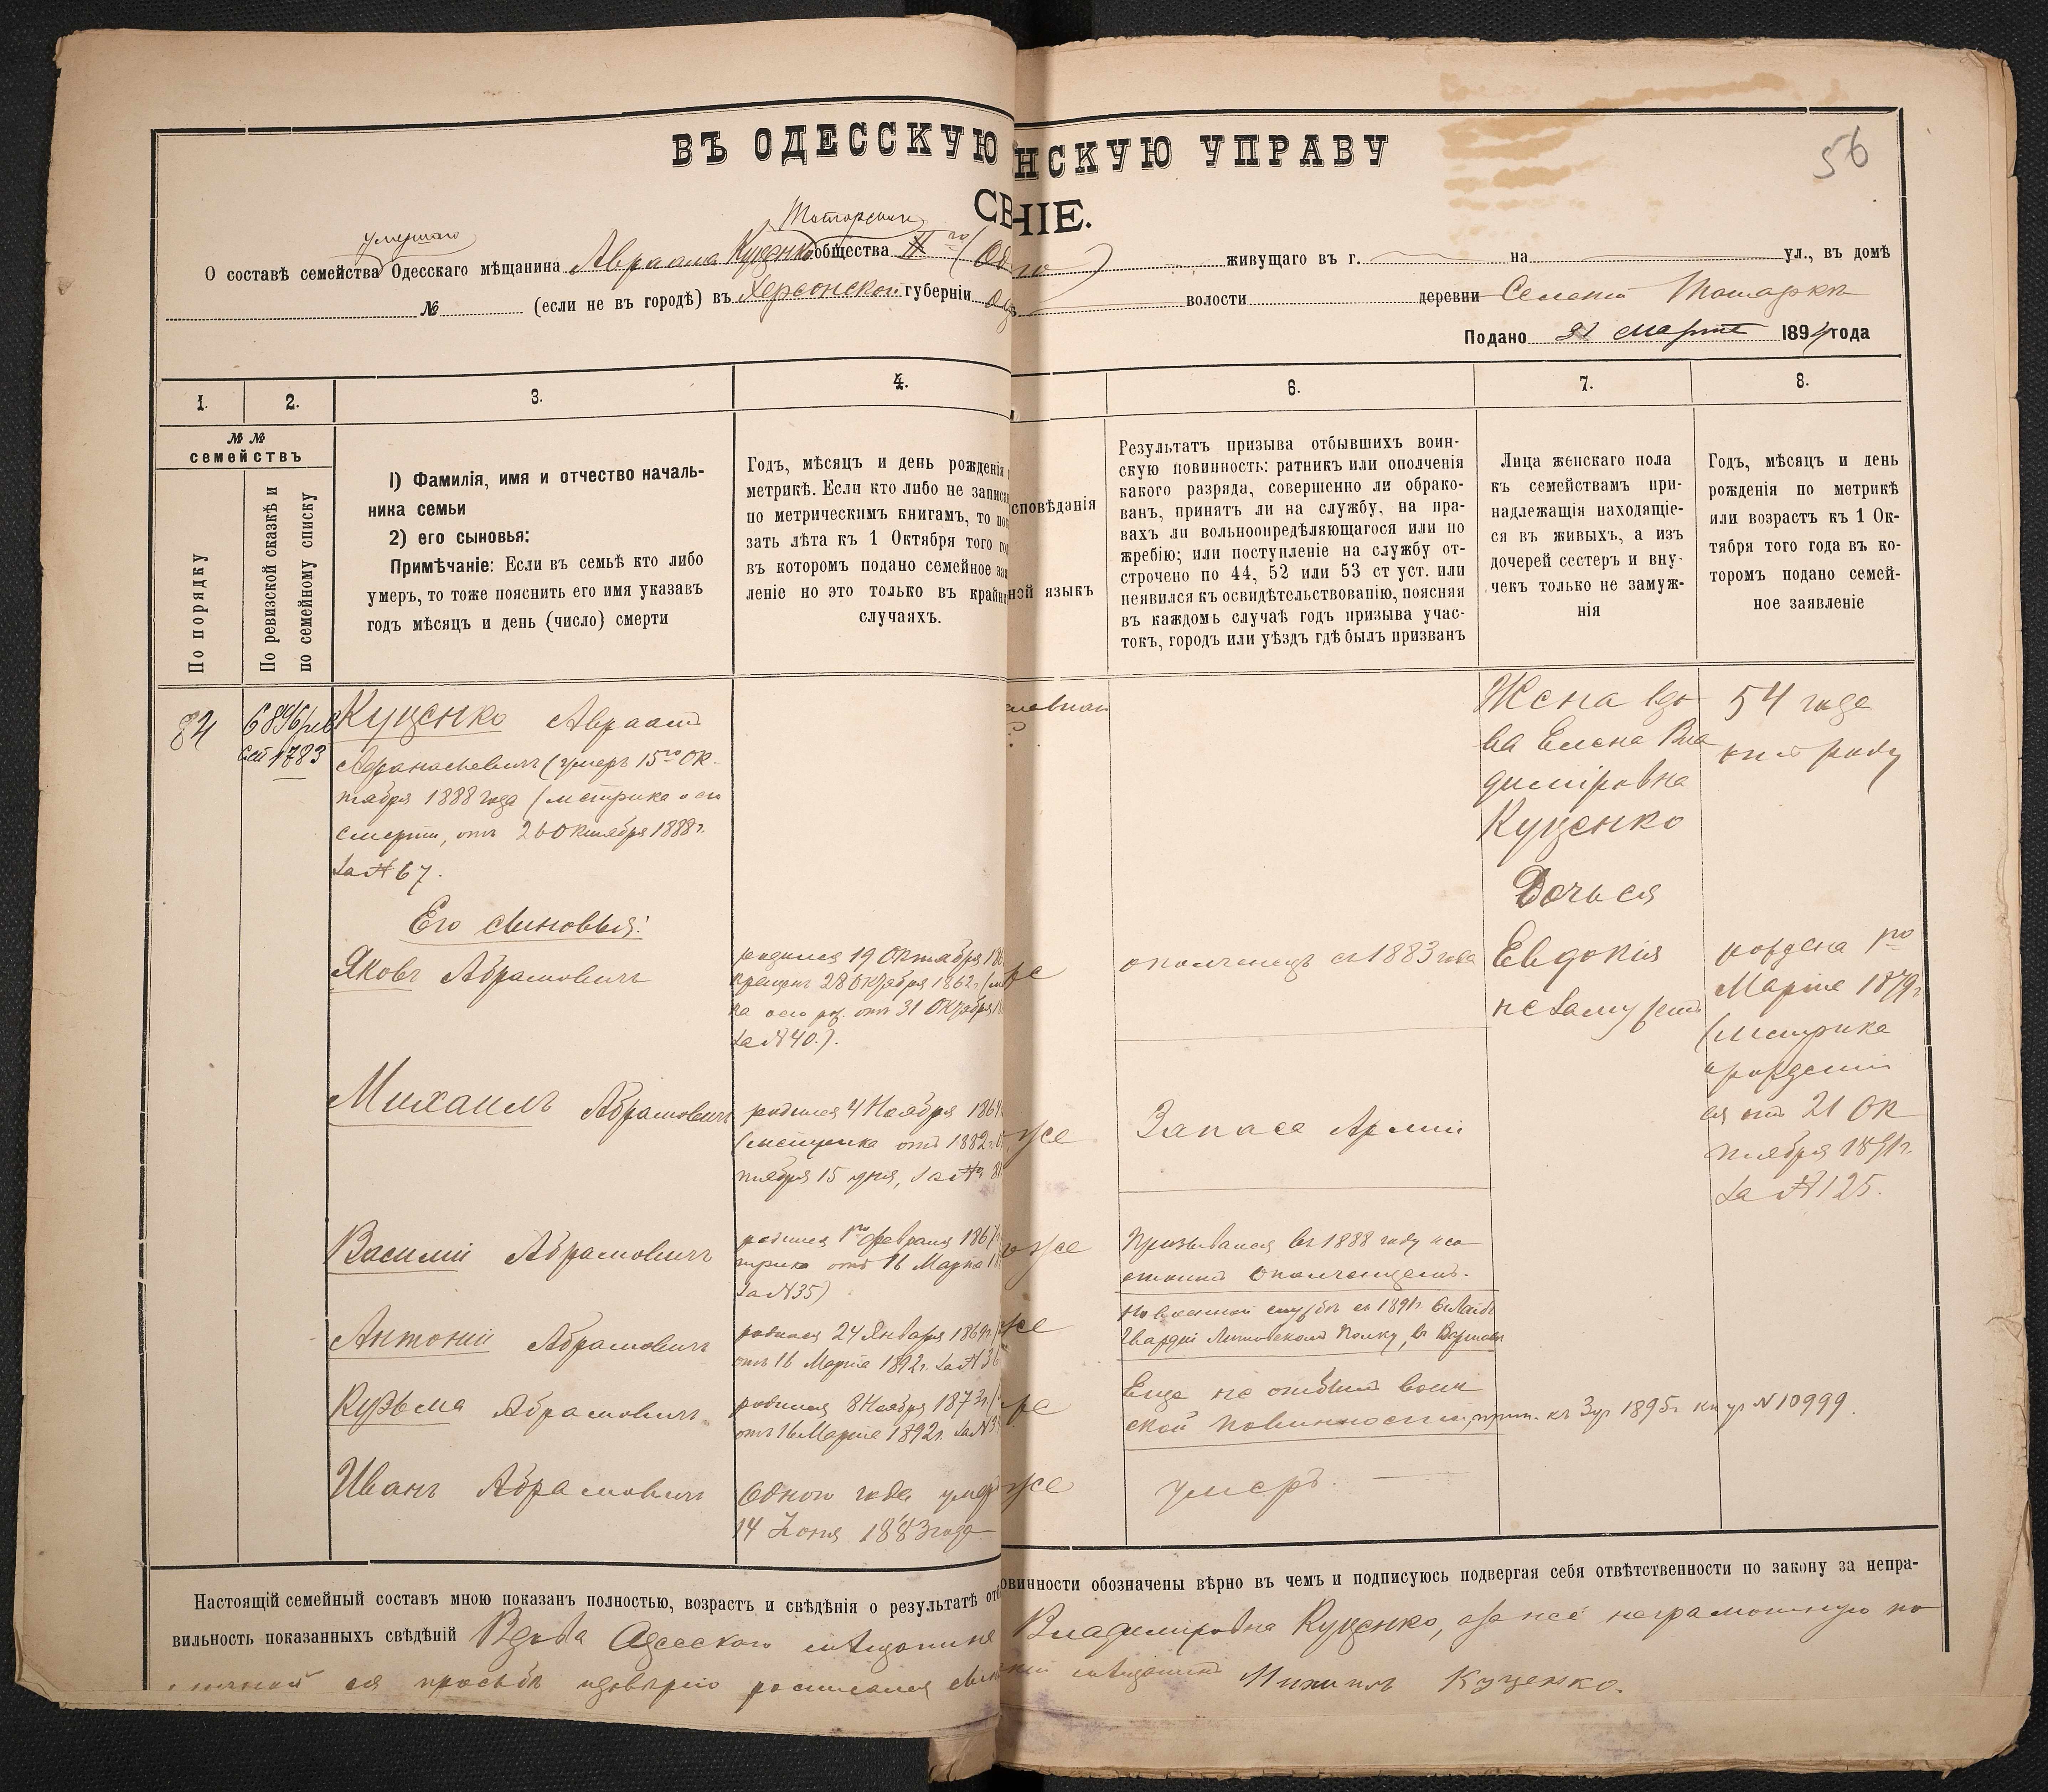 ВЪ ОДЕССКУЮ
НСКУЮ УПРАВУ
56
СВ
НІЕ.
умершаго
О составѣ семейства Одесскаго мѣщанина Авраама Куценко общества
живущаго въ г. на ул., въ домѣ
№ (если не въ городѣ) въ Херсонской губерніи
волости деревни
Подано 31 Марта 1894 года
1.
2.
3.
4.
6.
7.
8.
№ №
семействъ
По порядку
По ревизской сказкѣ и
по семейному списку
1) Фамилія, имя и отчество началь-
ника семьи
2) его сыновья:
Примѣчаніе: Если въ семьѣ кто либо
умеръ, то тоже пояснить его имя указавъ
годъ мѣсяцъ и день (число) смерти
Годъ, мѣсяцъ и день рожденія
метрикѣ. Если кто либо не записа
по метрическимъ книгамъ, то пок
зать лѣта къ 1 Октября того го
въ котором подано семейное зая
леніе но это только въ крайни
случаяхъ.
сповѣданія
ной языкъ
Результатъ призыва отбывшихъ воин-
скую повинность: ратникъ или ополченія
какого разряда, совершенно ли обрако-
ванъ, принятъ ли на службу, на пра-
вахъ ли вольноопредѣляющагося или по
жребію; или поступленіе на службу от-
строчено по 44, 52 или 53 ст уст. или
неявился къ освидѣтельствованію, поясняя
въ каждомь случаѣ годъ призыва учас-
токъ, городъ или уѣздъ гдѣ былъ призванъ
Лица женскаго пола
къ семействамъ при-
надлежащія находящіе-
ся въ живыхъ, а изъ
дочерей сестеръ и вну-
чекъ только не замуж-
нія
Годъ, мѣсяцъ и день
рожденія по метрикѣ
или возрастъ къ 1 Ок-
тября того года въ ко-
торомъ подано семей-
ное заявленіе
84
6896/рев
сем 1783
Куценко Авраам
Афанасьевичъ (умеръ 15го Ок-
тября 1888 года (метрика о его
смерти, отъ 26 Октября 1888 г.
за № 67.
Жена вдо
ва Елена Вла
димировна
Куценко
54 года
Его сыновья:
Дочь ея
Яковъ Абрамовичъ
родился 19 Октября 186
крещенъ 28 Октября 1862 г.
отъ 31 Октября
за № 40.).
ополченецъ съ 1883 года
Евдокія
незамужняя
рождена 1го
Марта 1879 г.
(метрика
о рожденіи
ея отъ 21 Ок
тября 1891 г.
за № 125.
Михаилъ Абрамовичъ
родился 4 Ноября 1864
(метрика отъ 1882 г.
тября 15 дня, за №
же
Запасъ Арміи
Василій Абрамовичъ
родился 1го Февраля 1867
трика отъ 16 Марта
за № 35)
же
Призывался въ 1888 году и со
стоитъ ополченцемъ.
Антоній Абрамовичъ
родился 24 Января 1869 г.
отъ 16 Марта 1892 г. за № 36
же
На военной службѣ съ 1891 г. въ Лейбъ
Гвардіи Литовскомъ полку, въ Варшавѣ
Кузьма Абрамовичъ
родился 8 Ноября 1873 г.
отъ 16 Марта 1892 г. за № 3
же
Еще не отбылъ воин
ской повинности, 1895 г. № 10999.
Иванъ Абрамовичъ
Одного года умеръ
14 Іюня 1883 года
же
умеръ.
Настоящій семейный составъ мною показанъ полностью, возрастъ и свѣдѣнія о результатѣ отб
овинности обозначены вѣрно въ чемъ и подписуюсь подвергая себя отвѣтственности по закону за непра-
вильность показанныхъ свѣдѣній Вдова Одесскаго мѣщанина
Владимировна Куценко, а за неё неграмотную по
ея просьбѣ и довѣрію росписался
мѣщанинъ Михаилъ Куценко.